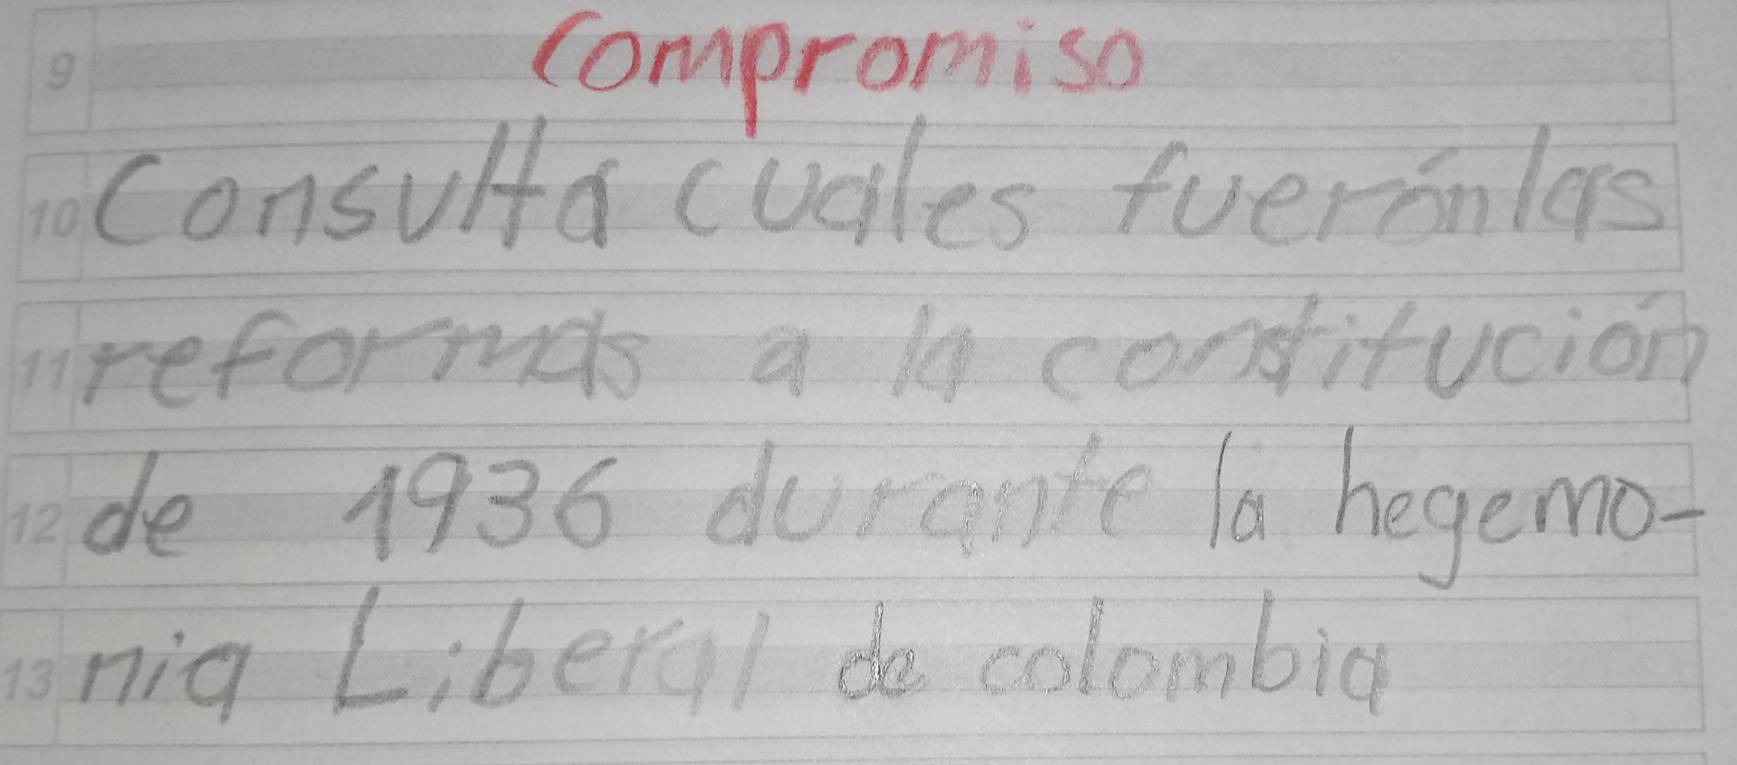 9
Compromiso
10 Consulta cuales fuerón las
11 reformas a la constitución
12 de 1936 durante la hegemo-
13 nia Liberal de colombia